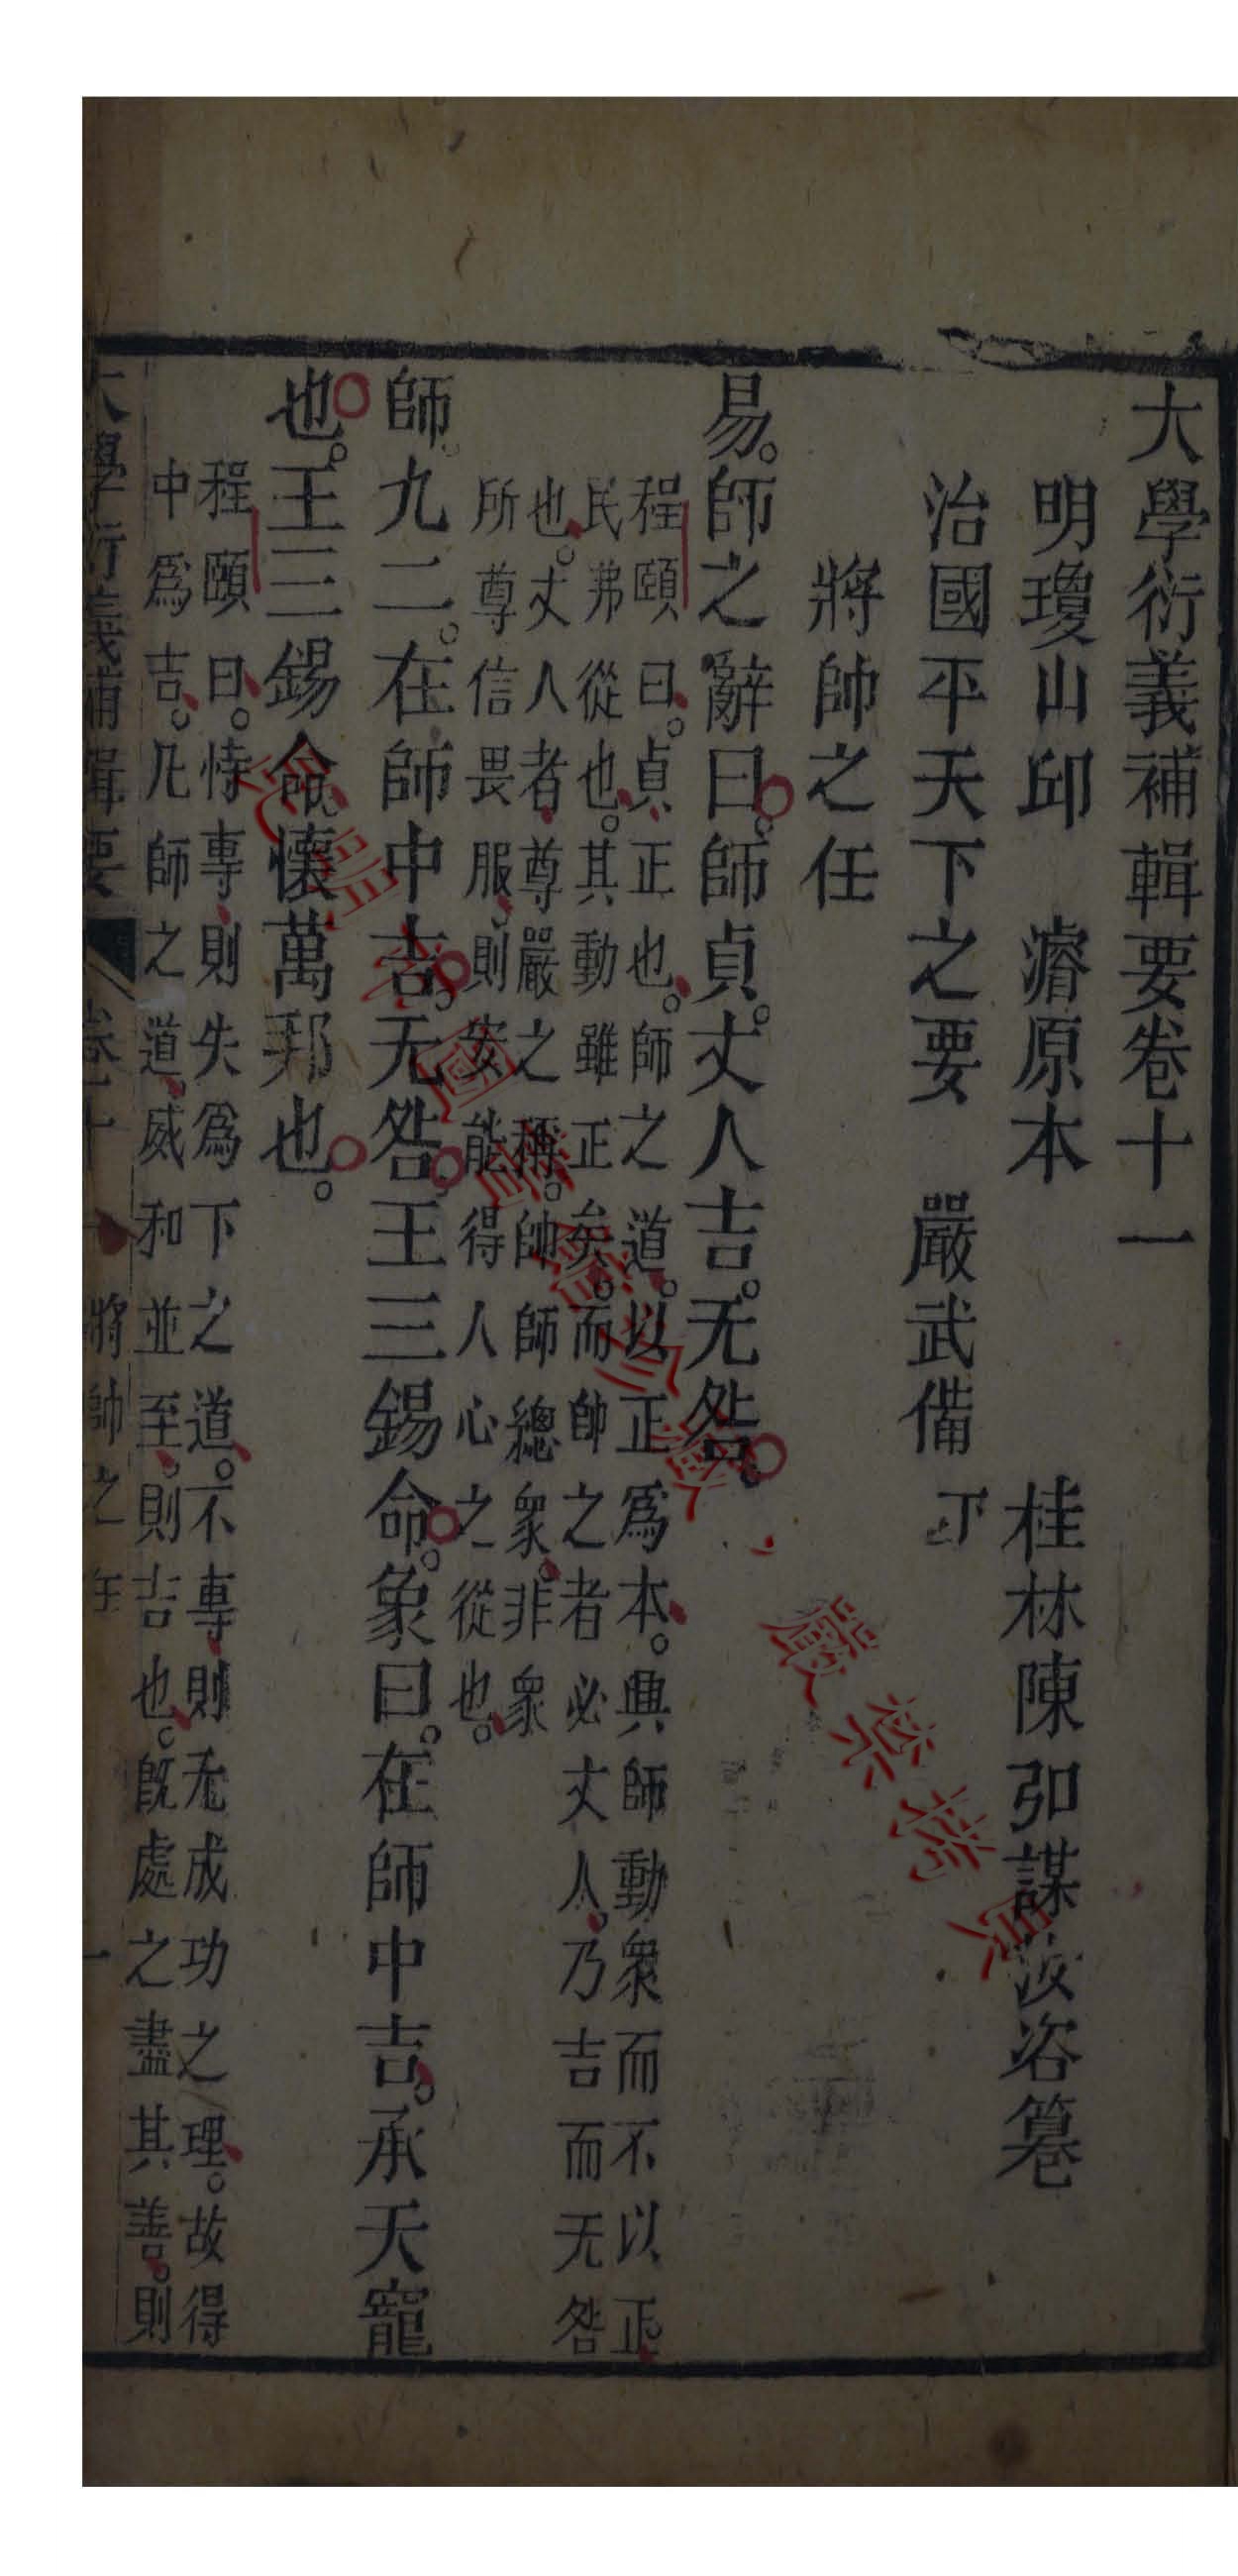 大學衍義補輯要卷十一
明瓊山邱　濬原本　　　桂林陳弘謀汝咨纂
治國平天下之要　嚴武備下
將帥之任
易。師之辭曰。師貞。丈人吉。无咎。
程頤曰。貞正也。師之道。以正為本。興師動衆而不以正
民弗從也。其動雖正矣。而帥之者必丈人。乃吉而无咎
也。丈人者尊嚴之稱。帥師總衆。非衆
所尊信畏服。則安能得人心之從也。
師。九二。在師中吉。无咎。王三錫命。象曰。在師中吉。承天寵
也。王三錫命。懷萬邦也。
程頤曰。恃專則失為下之道。不專則无成功之理。故得
中為吉。凡師之道。威和並至。則吉也。既處之盡其善。則
大學衍義補輯要　卷十一　將帥之任　一
嚴禁拷貝